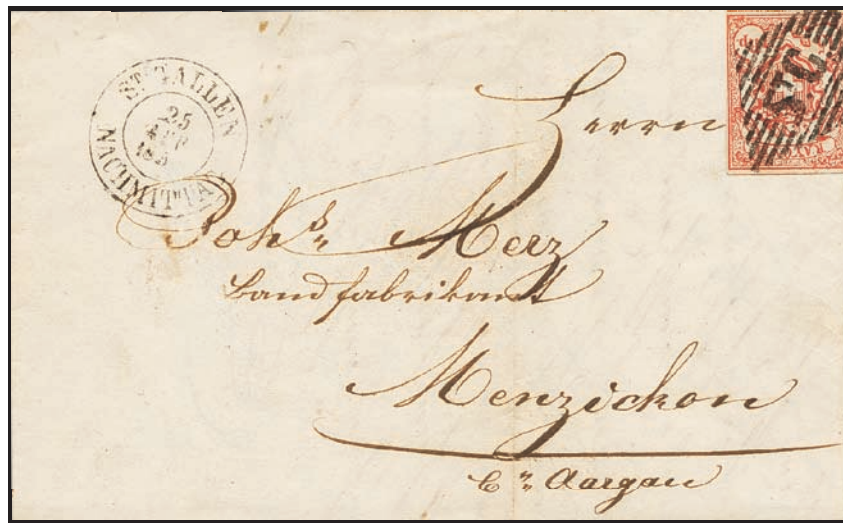 ST GALLEN
25
NACHMITTA
Herrn
Johs. Merz
Bandfabrikant
Menzickon
Cn. Aargau